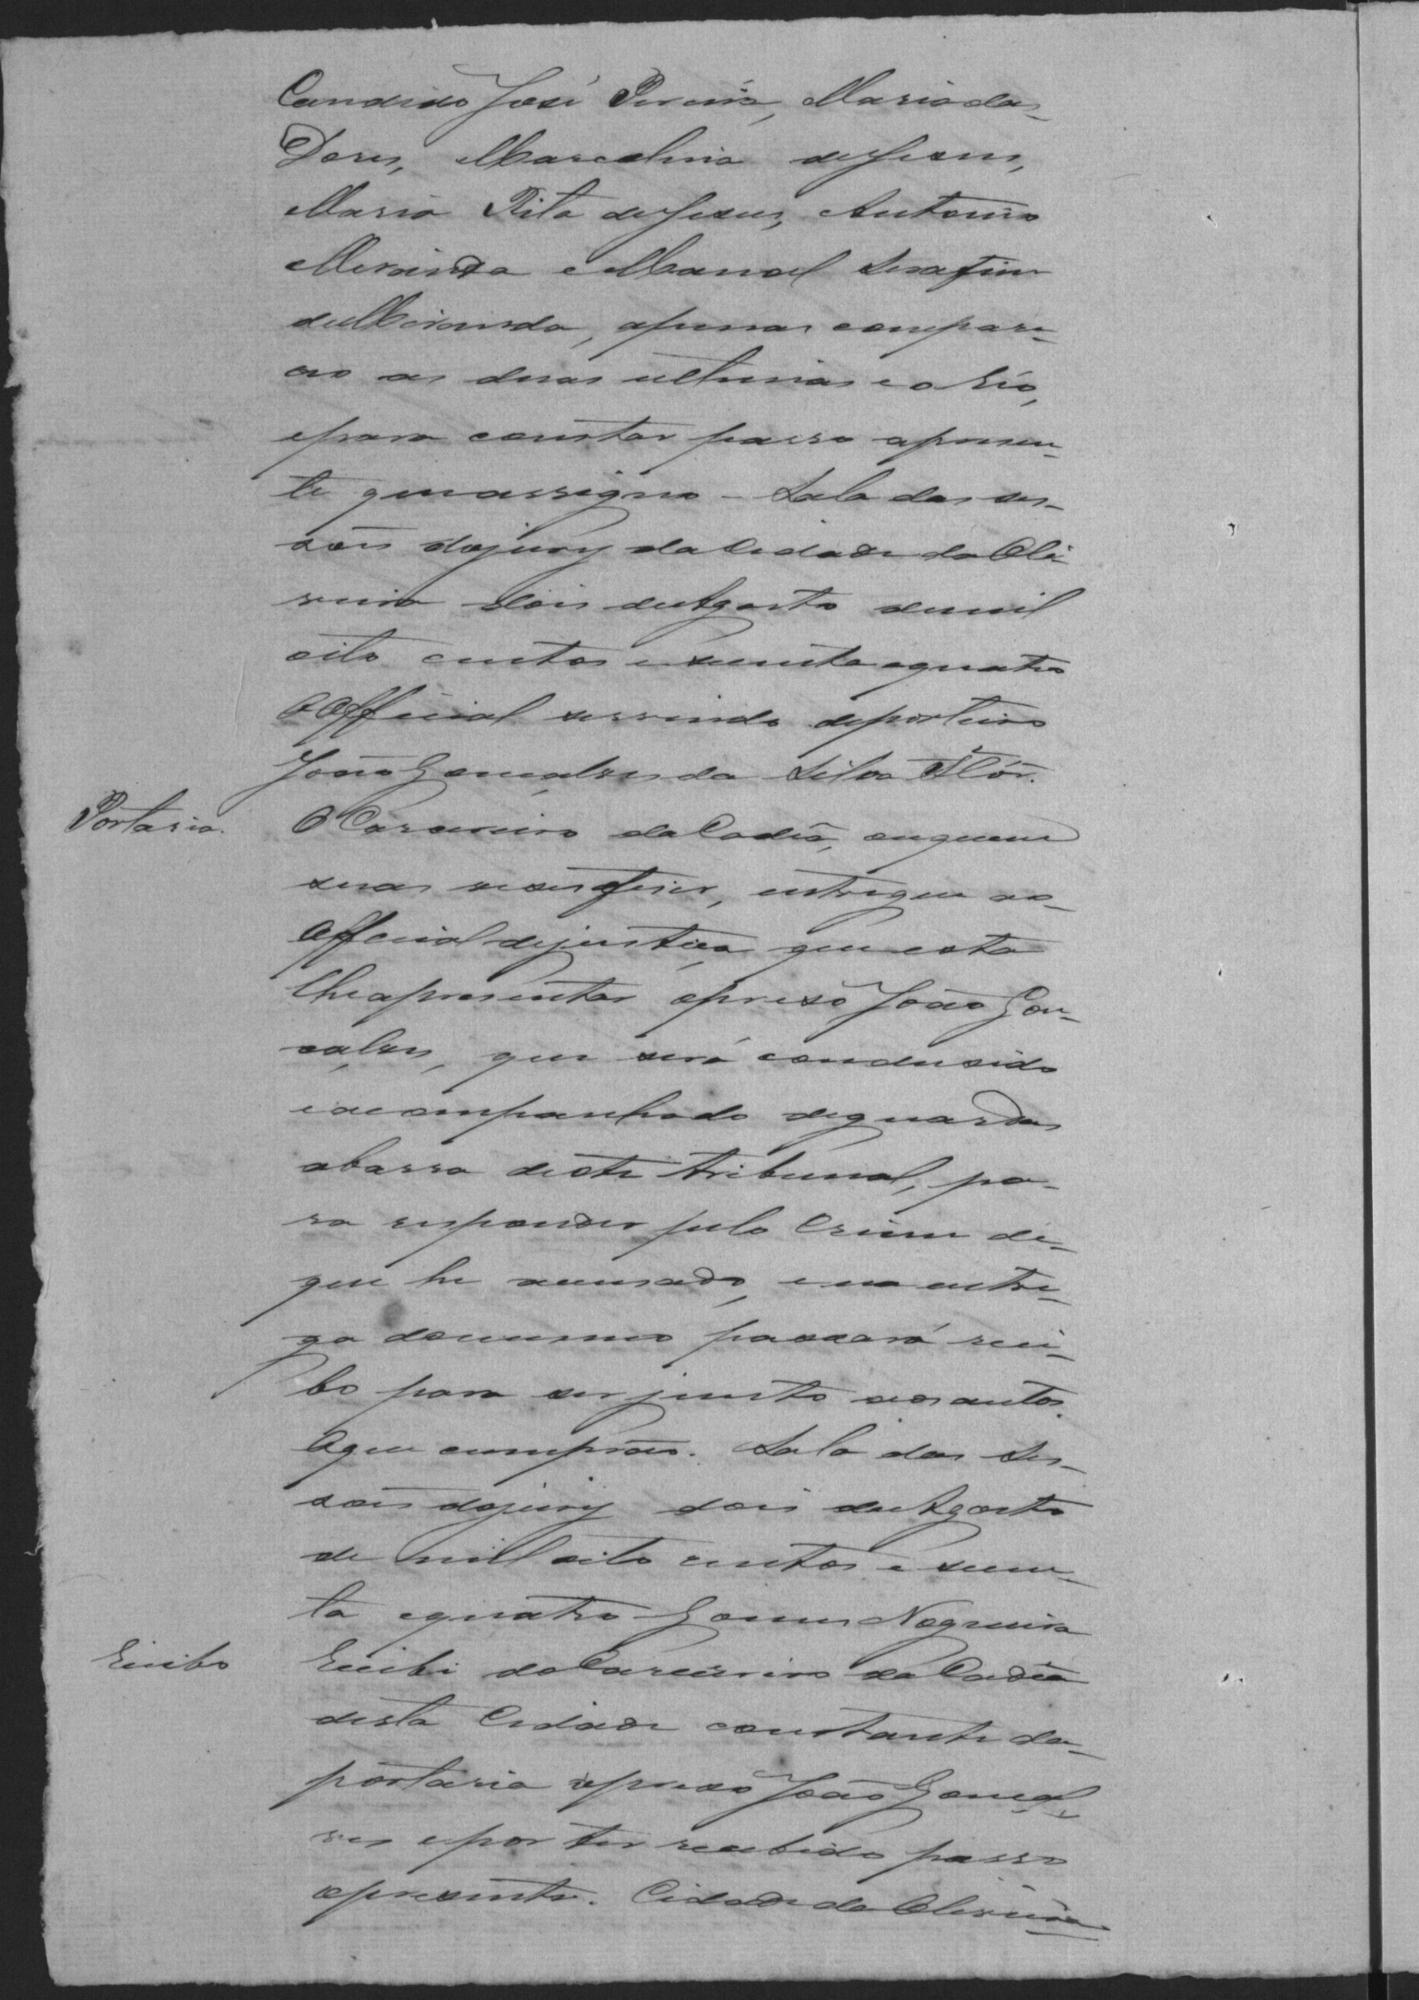 Candido José Pereira, Maria das
Dores, Marcelina de Jesus,
Maria Rita de Jesus, Antonio
Miranda e Manoel Serafim
de Miranda, apenas compare-
ceo as duas ultimas e o Réo,
e para constar passo a presen-
te que assigno - Sala das ses-
sões do jury da Cidade da Oli
veira dois de Agosto de mil
oito centos e setenta e quatro
O Official servindo de porteiro
João Gonçalves da Silva Flôr.
Portaria. O Carcereiro da Cadêa, em quem
suas vezes fizer, entregue ao
Official de justiça que esta
lhe apresentar o prezo João Gon-
çalves, que será condusido
e acompanhado de guardas
a barra deste tribunal, pa-
ra responder pelo Crime de
que he accusado, e na entre-
ga do mesmo passará reci-
bo para ser junto aos autos.
O que cumprão. Sala das Ses-
sões do jury dois de Agosto
de mil oito centos e seten-
ta e quatro - Gomes Nogueira
Recibo Recibi do Carcereiro da Cadêa
desta Cidade constante da
portaria o prezo João Gonçal-
ves e por ter recebido passo
o presente. Cidade da Oliveira